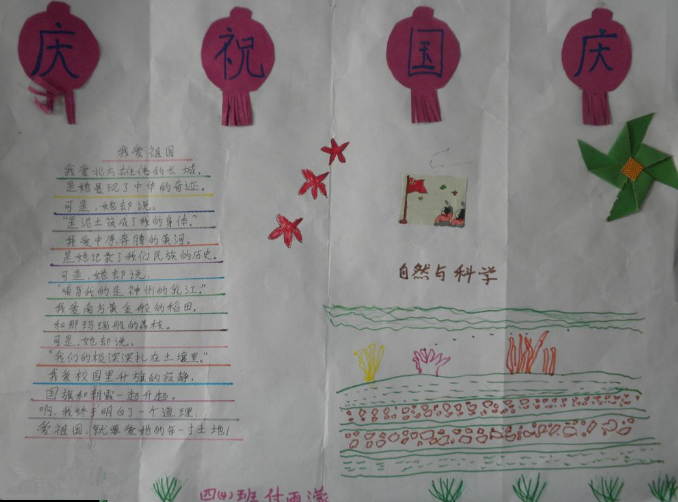 庆 祝 国 庆
我爱祖国
我爱北方雄伟的长城,
是她展现了中华的奇迹。
可是,她却说:
"是泥土筑成了我的身体。"
我爱中原奔腾的黄河。
是她记载了我们民族的历史。
可是,她却说:
"哺育我的是神州的乳汁。"
我爱南方黄金般的稻田,
和那玛瑙般的荔枝。
可是,她却说:
"我们的根深深扎在土壤里。"
我爱校园里升旗的寂静,
国旗和朝霞一起升起,
啊,我终于明白了一个道理:
爱祖国,就要爱她的每一寸土地!
自然与科学
四(4)班 付雨